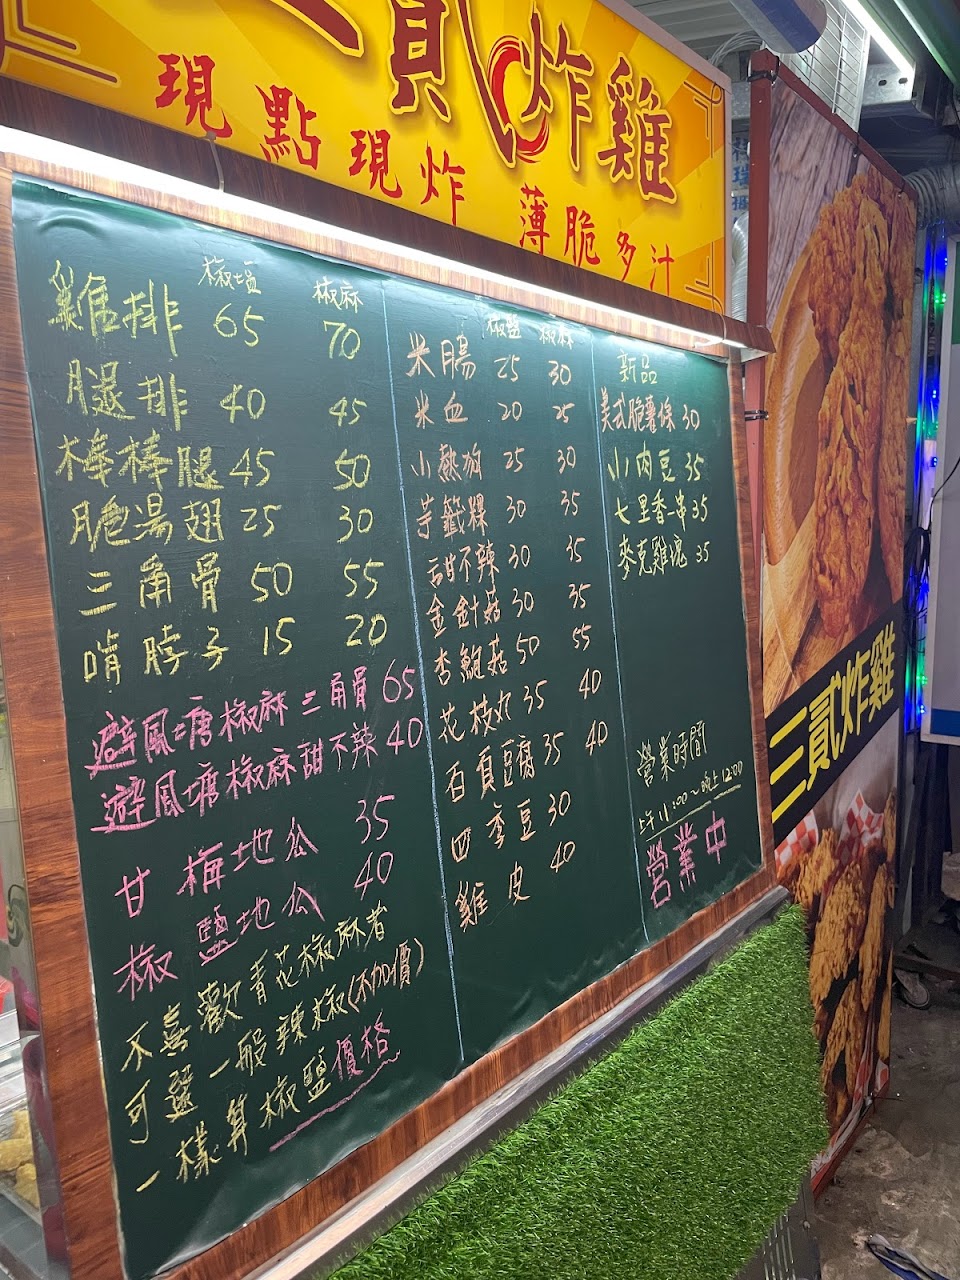 三貳炸雞
現點現炸 薄脆多汁
椒塩 椒麻
雞排 65 70
腿排 40 45
棒棒腿 45 50
脆湯翅 25 30
三角骨 50 55
啃脖子 15 20
避風塘椒麻三角骨 65
避風塘椒麻甜不辣 40
甘梅地瓜 35
椒鹽地瓜 40
不喜歡青花椒麻者
可選一般辣椒(不加價)
一樣算椒鹽價格
椒鹽 椒麻
米腸 25 30
米血 20 25
小熱狗 25 30
芋籤粿 30 35
甜不辣 30 35
金針菇 30 35
杏鮑菇 50 55
花枝丸 35 40
百頁豆腐 35 40
四季豆 30
雞皮 40
新品
美式脆薯條 30
小肉豆 35
七里香一串 35
麥克雞塊 35
營業時間
上午11:00~晚上12:00
營業中
三貳炸雞